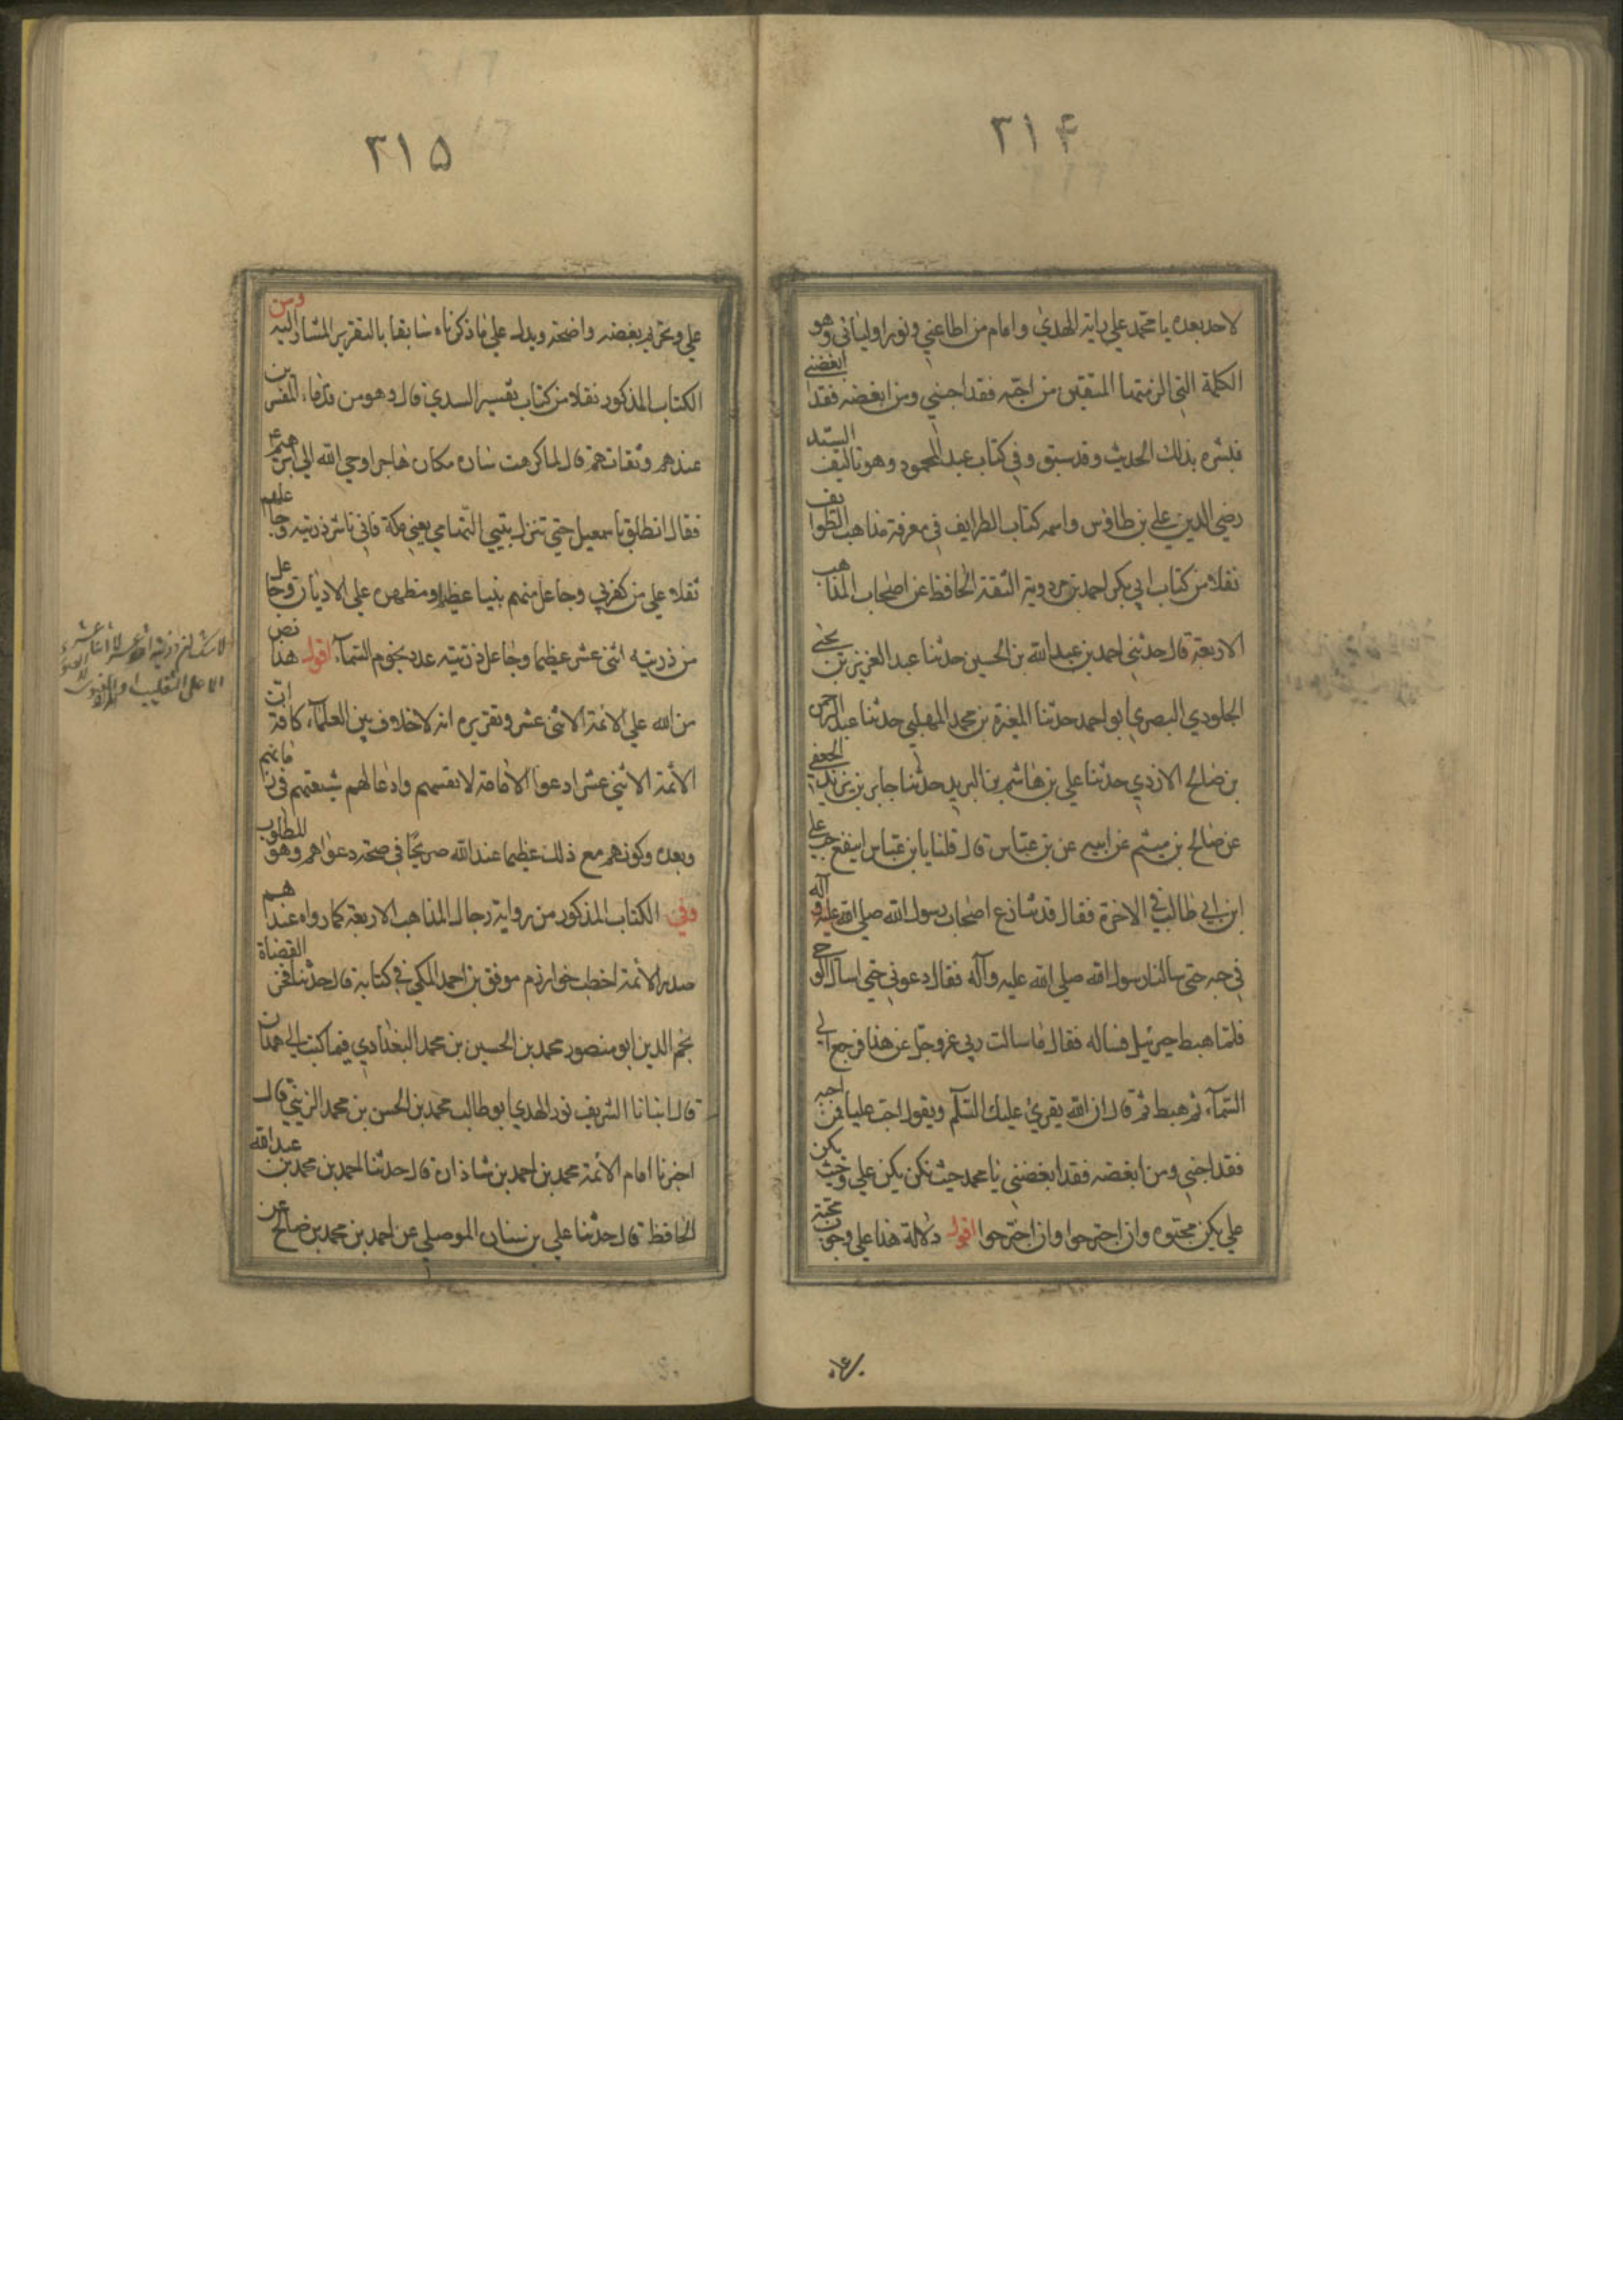 ٢١۴
لاحد بعده يا محمد علي راية الهدي وامام من اطاعني ونور اوليائي وهو
الكلمة التي الزمتها المتقين من احبه فقد احبني ومن ابغضه فقد ابغضني
فبشره بذلك الحديث وقد سبق وفي كتاب عبد المحمود وهو تاليف السيد
رضي الدين علي بن طاوس واسمه كتاب الطرايف في معرفة مذاهب الطوايف
نقلا من كتاب ابي بكر احمد بن مردوية الثقة الحافظ عن اصحاب المذاهب
الاربعة قال حدثني احمد بن عبد الله بن الحسين حدثنا عبد العزيز بن يحيي
الجلودي البصري ابو احمد حدثنا المغيرة بن محمد المهلبي حدثنا عبد الرحمن
بن صالح الازدي حدثنا علي بن هاشم بن البريد حدثنا جابر بن يزيد الجعفي
عن صالح بن ميثم عن ابيه عن بن عباس قال قلنا يا بن عباس اينفع حب علي
ابن ابي طالب في الاخرة فقال قد تنازع اصحاب رسول الله صلي الله عليه وآله
في حبه حتي سالنا رسول الله صلي الله عليه وآله فقال دعوني حتي اسال الوحي
فلما هبط جبرئيل فساله فقال فاسالت ربي عز وجل عن هذا فرجع الي
السمآء ثم هبط ثم قال ان الله يقرئ عليك السلم ويقول احب عليا فمن احبه
فقد احبني ومن ابغضه فقد ابغضني يا محمد حيث تكن يكن علي وحيث يكن
علي يكن محبوه وان اجترحوا وان اجترحوا اقول دلالة هذا علي وجوب محبة
٢١۵
علي وتحريم بغضه واضحة ويدل علي ما ذكرناه سابقا بالتقرير المشار اليه ومن
الكتاب المذكور نقلا من كتاب تفسير السدي قال وهو من قدماء المفسرين
عندهم وثقاتهم قال لما كرهت سان مكان هاجر اوحي الله الي ابرهيم
فقال انطلق باسمعيل حتي تنزله بيتي التهامي يعني مكة فاني ناشر ذريته وجاعلهم
ثقلا علي من كفر بي وجاعل منهم نبيا عظيما ومظهره علي الاديان وجاعل
من ذريته اثني عشر عظيما وجاعل ذريته عدد نجوم السمآء اقول هذا نص
من الله علي الائمة الاثني عشر وتقريره انه لا خلاف بين العلمآء كافة ان
الأئمة الاثني عشر ادعوا الامامة لانفسهم وادعا لهم شيعتهم في زمانهم
وبعده وكونهم مع ذلك عظيما عند الله صريحا في صحة دعواهم وهو المطلوب
وفي الكتاب المذكور من رواية رجال المذاهب الاربعة كما رواه عندهم
صدر الأئمة اخطب خوارزم موفق بن احمد المكي في كتابه قال حدثنا فخر القضاة
نجم الدين ابو منصور محمد بن الحسين بن محمد البغدادي فيما كتب الي همدان
قال انبانا الشريف نور الهدي ابو طالب محمد بن الحسن بن محمد الزيني قال
اخبرنا امام الأئمة محمد بن احمد بن شاذان قال حدثنا احمد بن محمد بن عبد الله
الحافظ قال حدثنا علي بن سنان الموصلي عن احمد بن محمد بن صالح عن